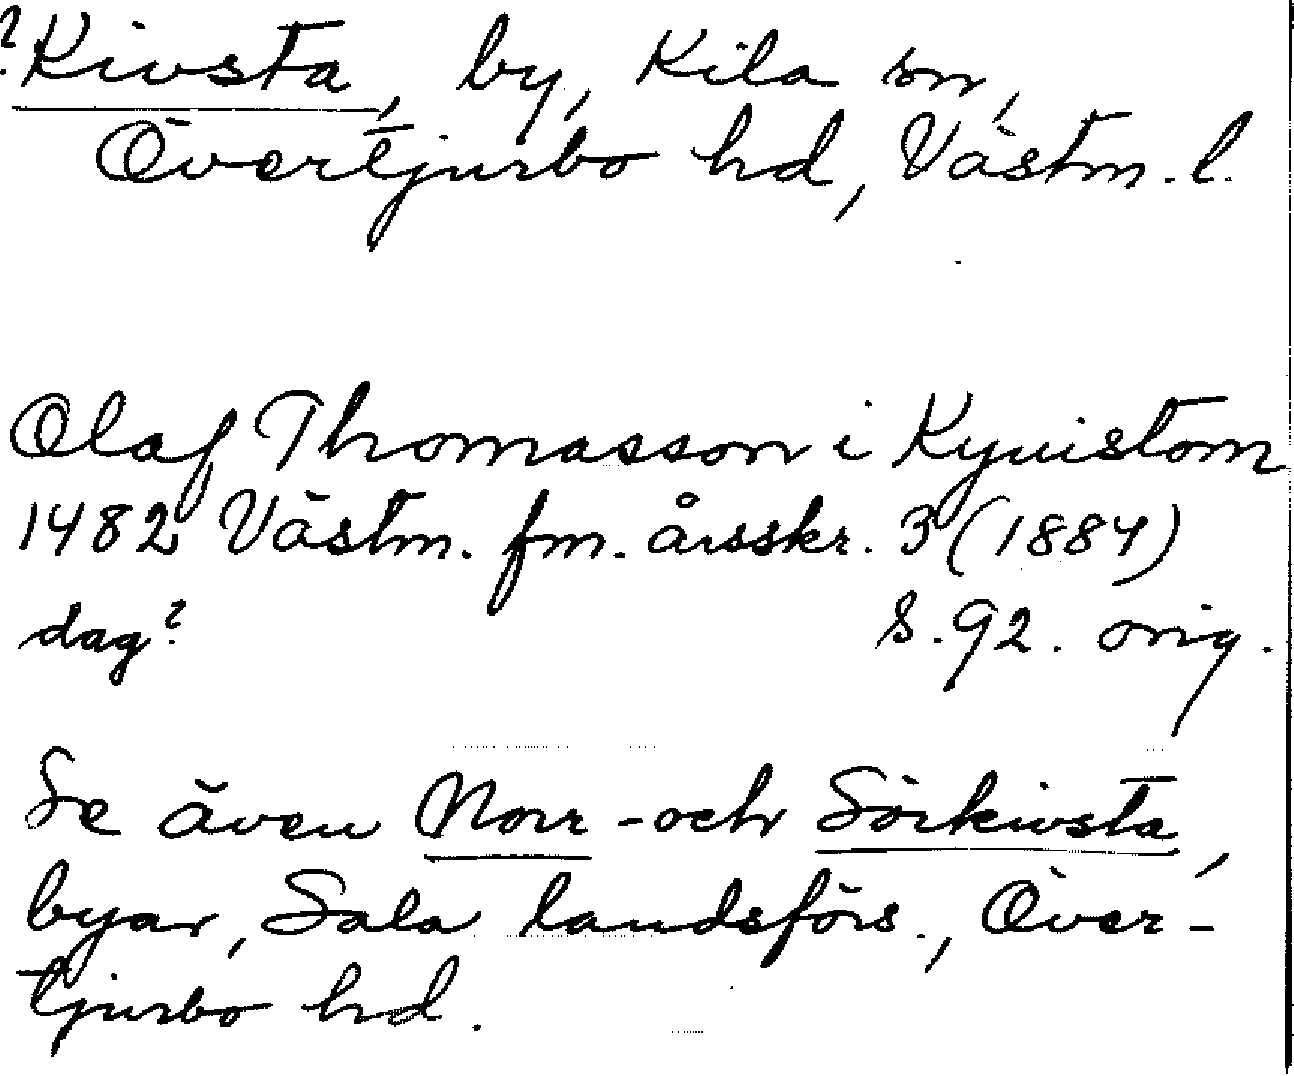 ? Kivsta, by, Kila sn,
Övertjurbo hd, Västm. l.
Olaf Thomasson i Kyuistom
1482 Västm. fm. årsskr. 3 (1884)
dag? S. 92. orig.
Se även Norr- och Sörkivsta,
byar, Sala landsförs., Över-
tjurbo hd.